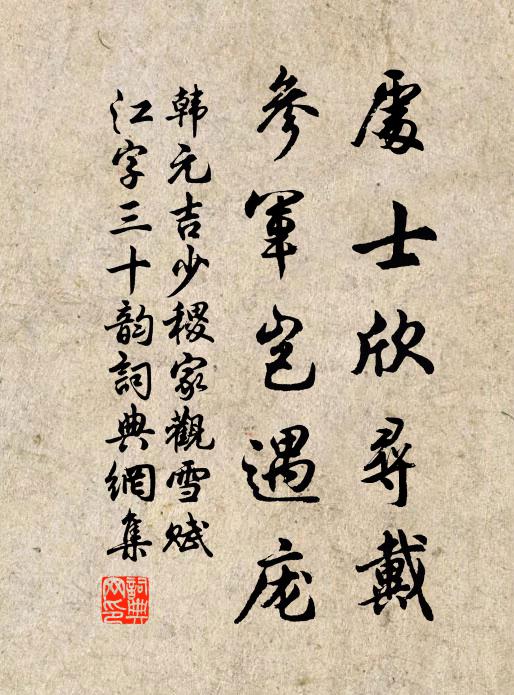 處士欣尋戴
參軍岂遇庞
韩元吉少稷家觀雪赋
江字三十韵詞典網集
詞典網印